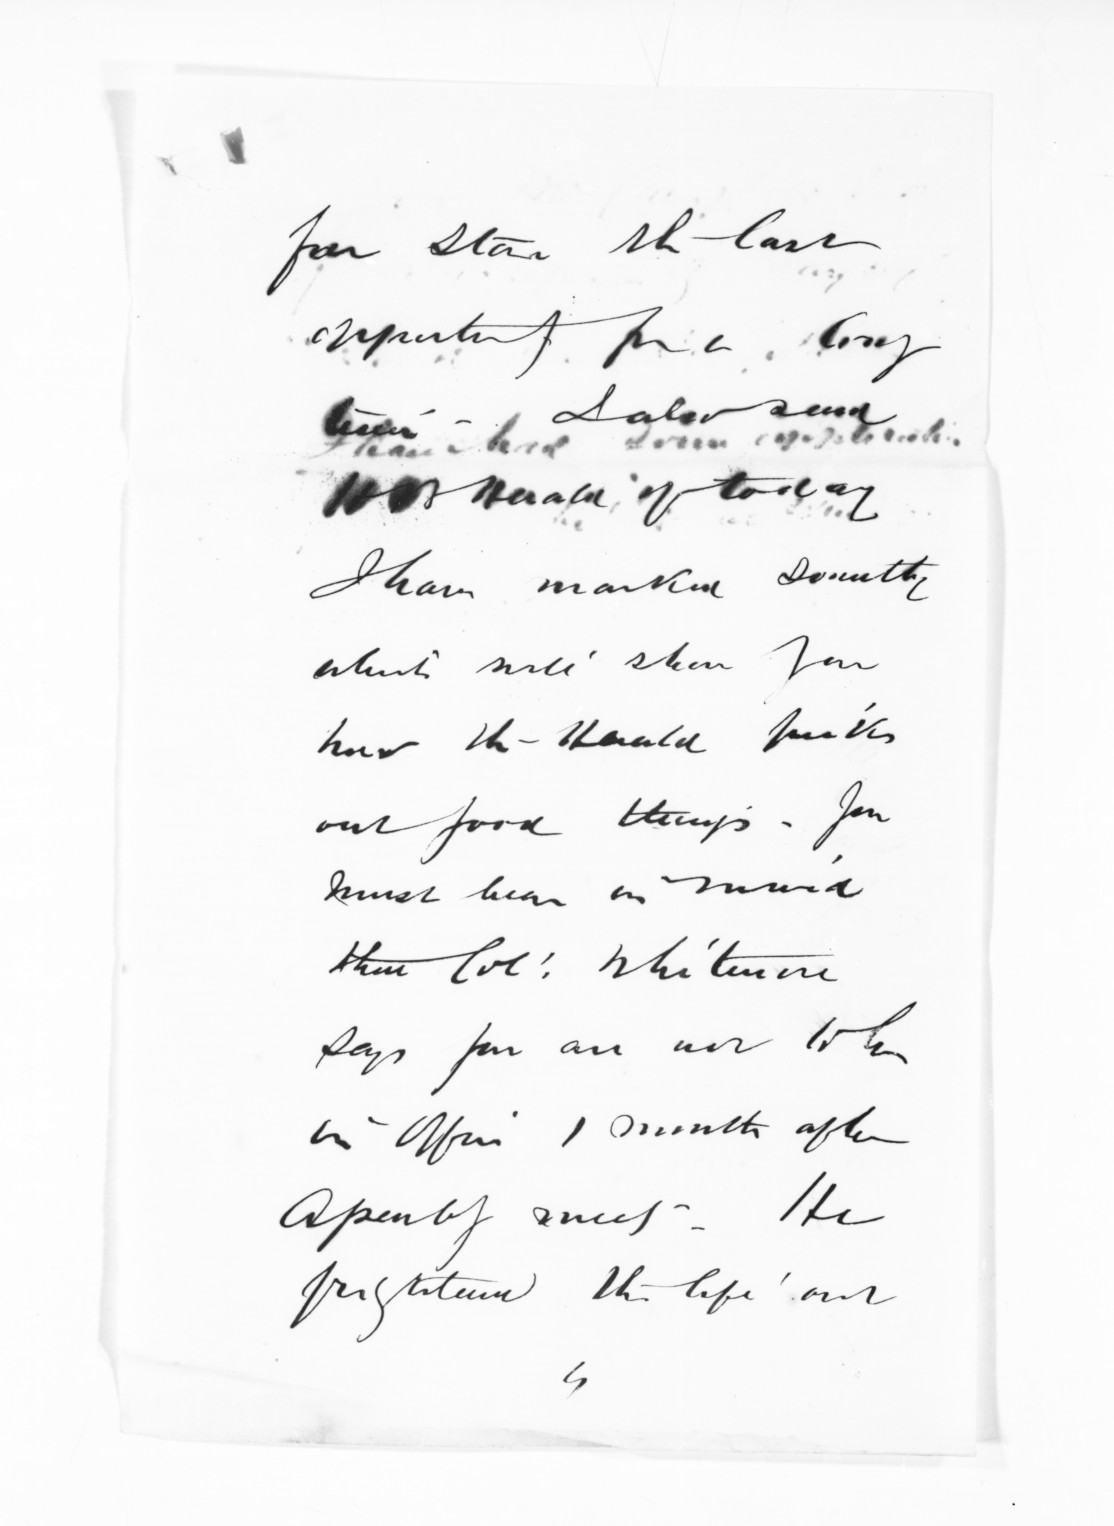 you stand the last
opportunity for a long
time - I also send
Herald of today
I have marked something
which will show you
how the Herald picks
out good things - you
must bear in mind
that Col. Whitmore
says you are not to be
in Office 1 month after
Assembly meets - He
frightened the life out